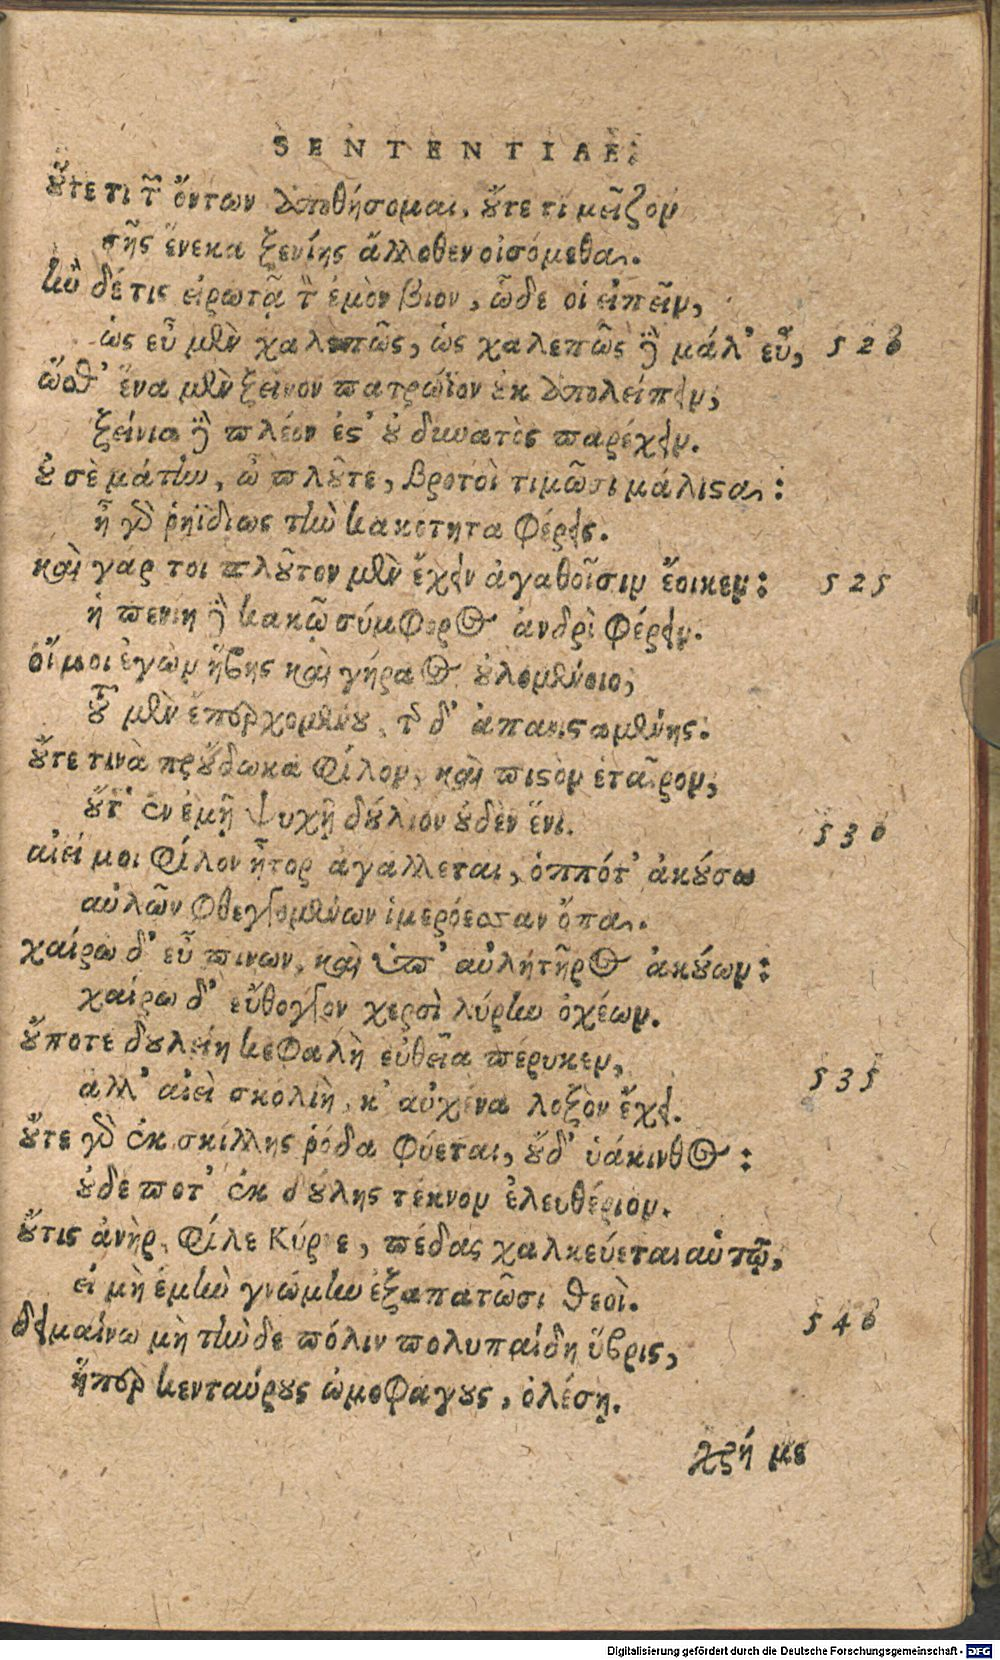 SENTENTIAE.
οὔτε τι τῶν ὄντων ἀποθήσομαι, οὔτε τι μεῖζον
σῆς ἕνεκα ξενίης ἄλλοθεν οἰσόμεθα.
ἢν δέ τις εἰρωτᾷ τὸν ἐμὸν βίον, ὧδε οἱ εἰπεῖν,
ὡς εὖ μὲν χαλεπῶς, ὡς χαλεπῶς δὲ μάλ' εὖ, 520
ὥσθ' ἕνα μὲν ξεῖνον πατρώϊον οὐκ ἀπολείπειν,
ξείνια δὲ πλέον ἐς' οὐ δυνατὸς παρέχειν.
οὐ σὲ μάτην, ὦ πλοῦτε, βροτοὶ τιμῶσι μάλιστα:
ἦ γὰρ ῥηϊδίως τὴν κακότητα φέρεις.
καὶ γάρ τοι πλοῦτον μὲν ἔχειν ἀγαθοῖσιν ἔοικεν: 525
ἡ πενίη δὲ κακῷ σύμφορος ἀνδρὶ φέρειν.
οἴμοι ἐγὼν ἥβης καὶ γήραος οὐλομένοιο,
τοῦ μὲν ἐπερχομένου, τῆς δ' ἀπανισταμένης.
οὔτε τινὰ προὔδωκα φίλον, καὶ πιστὸν ἑταῖρον,
οὔτ' ἐν ἐμῇ ψυχῇ δούλιον οὐδὲν ἔνι. 530
αἰεί μοι φίλον ἦτορ ἀγάλλεται, ὁππότ' ἀκούσω
αὐλῶν φθεγγομένων ἱμερόεσσαν ὄπα.
χαίρω δ' εὖ πίνων, καὶ ὑπ' αὐλητῆρος ἀκούων:
χαίρω δ' εὔθογγον χερσὶ λύρην ὀχέων.
οὔποτε δουλείη κεφαλὴ εὐθεῖα πέφυκεν, 535
ἀλλ' αἰεὶ σκολιὴ, κ' αὐχένα λοξὸν ἔχει.
οὔτε γὰρ ἐκ σκίλλης ῥόδα φύεται, οὔδ' ὑάκινθος:
οὐδέ ποτ' ἐκ δούλης τέκνον ἐλευθέριον.
οὔτις ἀνὴρ, φίλε Κύρνε, πέδας χαλκεύεται αὑτῷ,
εἰ μὴ ἐμὴν γνώμην ἐξαπατῶσι θεοὶ. 540
δειμαίνω μὴ τήνδε πόλιν πολυπαίδη ὕβρις,
ἥπερ κενταύρους ὠμοφάγους, ὀλέσῃ.
χρή με
Digitalisierung gefördert durch die Deutsche Forschungsgemeinschaft - DFG